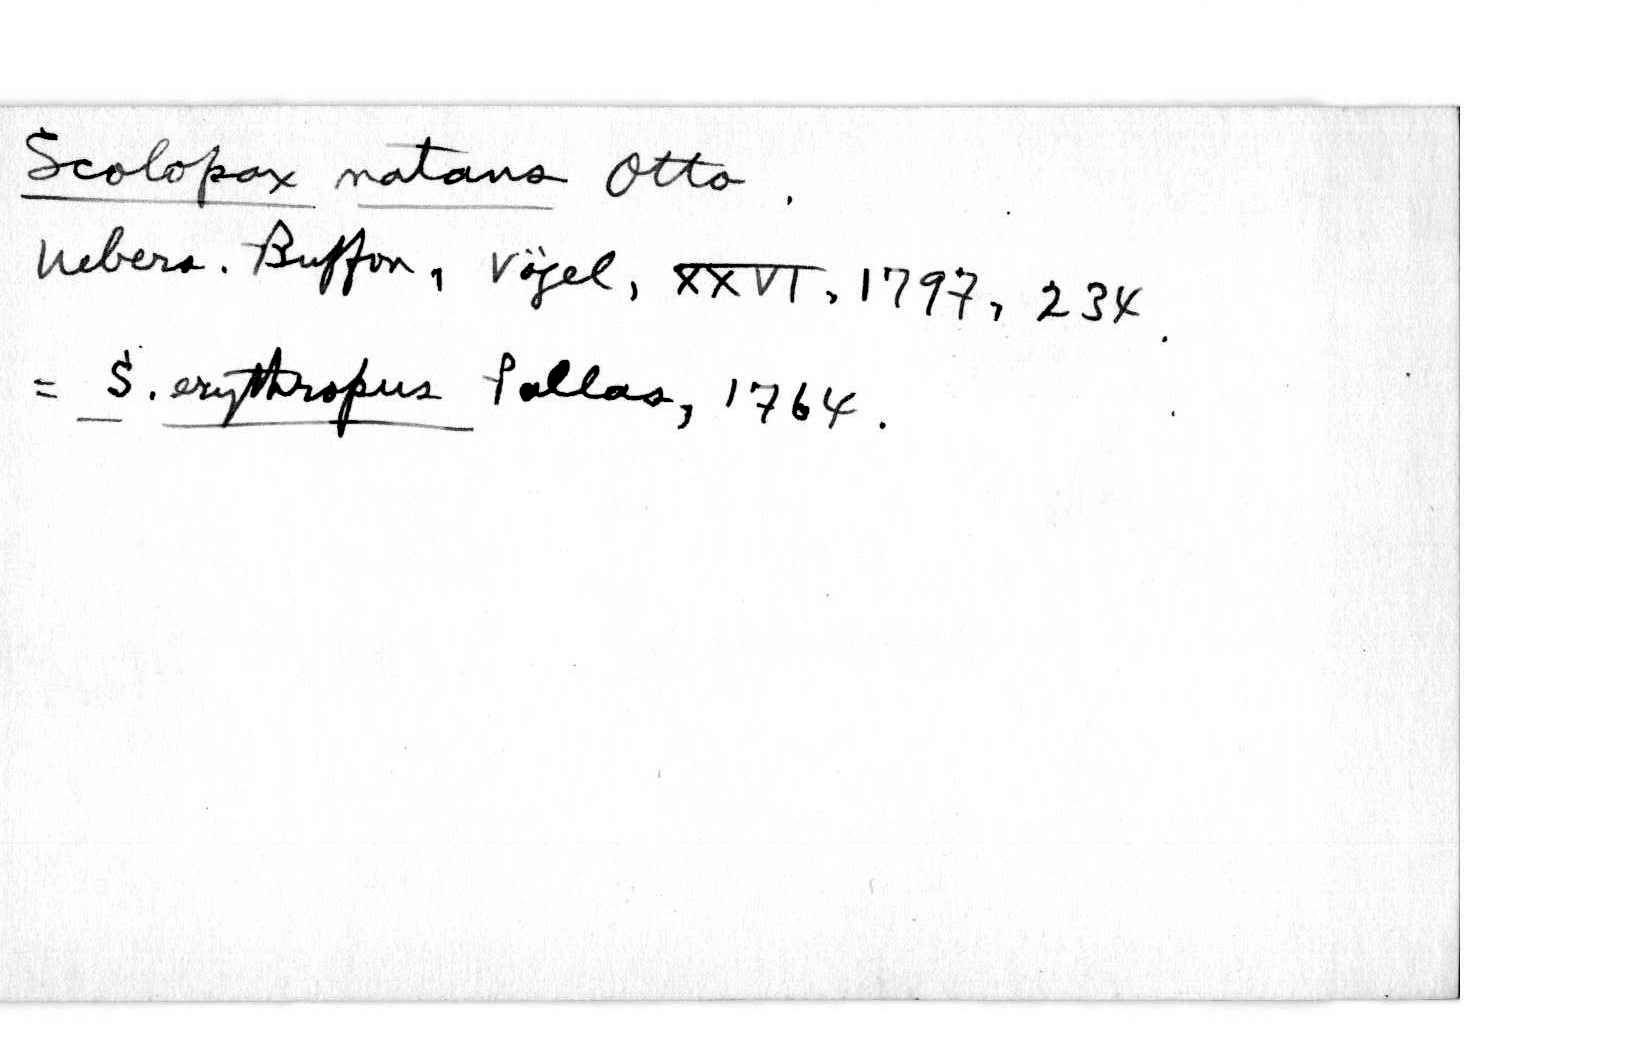 Scolopax natans Otto.
Uebers. Buffon, Vögel, XXVI, 1797, 234.
= S. erythropus Pallas, 1764.